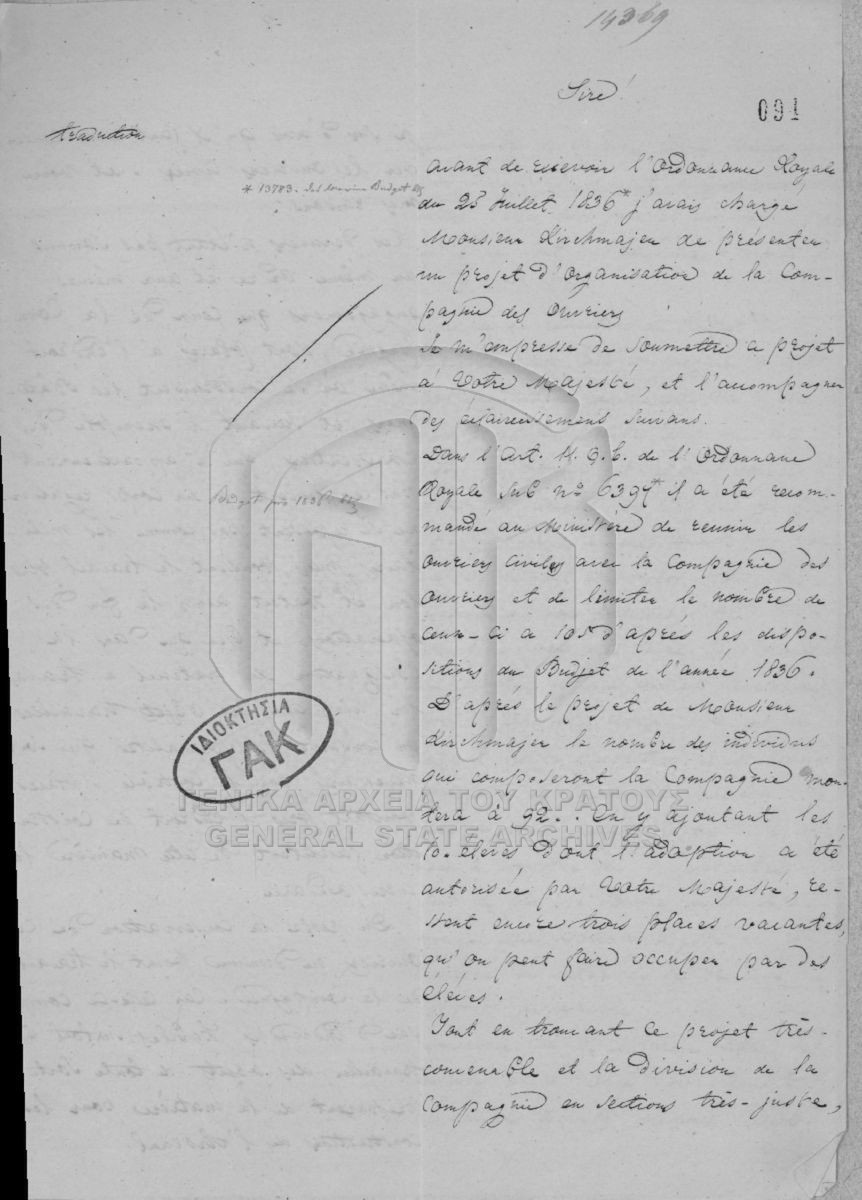 14369
Sire!
091
traduction
avant de recevoir l'Ordonnance Royale
* 13783. Budget
du 25 Juillet 1836* j'avais chargé
Monsieur Kirchmajer de présenter
un projet d'Organisation de la Com-
pagnie des Ouvriers
Je m'empresse de soumettre ce projet
à Votre Majesté, et l'accompagner
des éclaircissement suivans.
Dans l'Art. II. 9. b. de l'Ordonnance
Royale sub no 6397* il a été recom-
Budget pro 1836
mandé au Ministère de reunir les
ouvriers civiles avec la Compagnie des
ouvriers et de limiter le nombre de
ceux-ci à 105 d'après les dispo-
sitions du Budjet de l'année 1836.
D'après le projet de Monsieur
Kirchmajer le nombre des individus
qui composeront la Compagnie mon-
tera à 92. En y ajoutant les
10 élèves dont l'adoption a été
autorisée par Votre Majesté, re-
stent encore trois places vacantes,
qu'on peut faire occuper par des
élèves.
Tout en trouvant ce projet très-
convenable et la division de la
Compagnie en sections très-juste,
ΙΔΙΟΚΤΗΣΙΑ
ΓΑΚ
ΓΕΝΙΚΑ ΑΡΧΕΙΑ ΤΟΥ ΚΡΑΤΟΥΣ
GENERAL STATE ARCHIVES